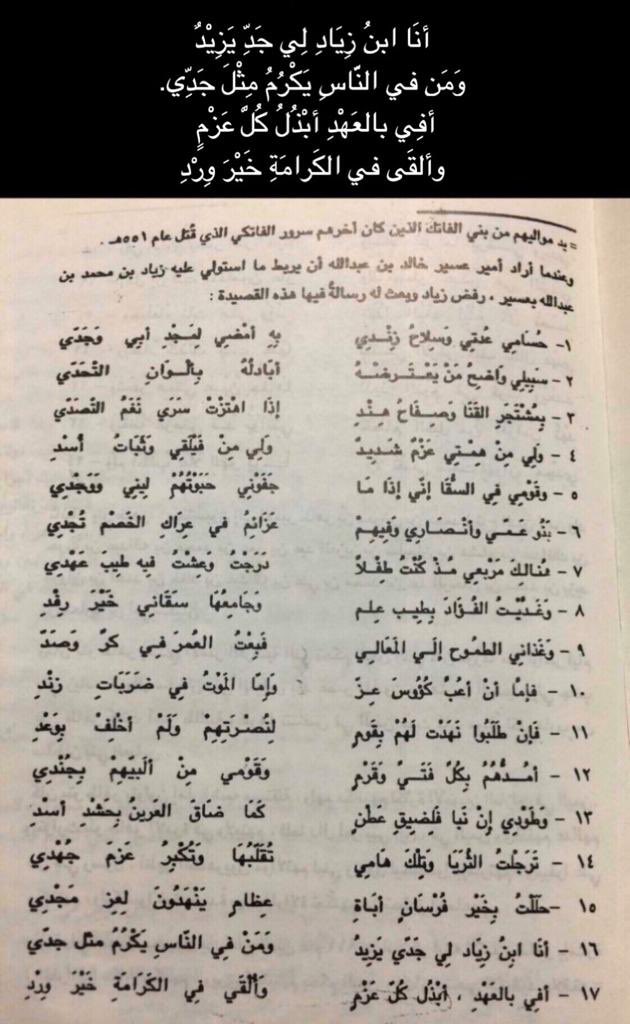 أنَا ابنُ زِيَادِ لِي جَدِّ يَزِيْدٌ
وَمَن في النَّاسِ يَكْرُمُ مِثْلَ جَدِّي.
أفِي بالعَهْدِ أبْذُلُ كُلَّ عَزْمٍ
وألقَى في الكَرامَةِ خَيْرَ وِرْدِ
= يد مواليهم من بني الفاتك الذين كان آخرهم سرور الفاتكي الذي قُتل عام ٥٥١هـ .
وعندما أراد أمير عسير خالد بن عبدالله أن يربط ما استولي عليه زياد بن محمد بن
عبدالله بعسير ، رفض زياد وبعث له رسالةً فيها هذه القصيدة :
١- حُسَامي عُدتِي وَسِلاحُ زِنْدِي بِهِ أمْضِي لِمَجْدِ أبِي وَجَدِّي
٢ - سَبِيلِي وَاضِحٌ مَنْ يَعْتَرِضْهُ أبَادلُهُ بِألْوَانِ التَّحَدِّي
٣ - بِمُشْتَجَرِ القَنَا وَصِفَاحُ هِنْدٍ إذَا اهْتَزَّتْ سَرَي نَغَمُ التَّصَدِّي
٤ - وَلِي مِنْ هِمَّتِي عَزْمٌ شَدِيدٌ وَلِي مِنْ فَيْلَقِي وَثَبَاتُ أُسْدِ
٥ - وَقَوْمِي فِي السُّقَا إنِّي إذَا مَا جَفَوْنِي حَبَوْتُهُمْ لِينِي وَوَجْدِي
٦ - بَنُو عَمِّي وأنْصَارِي وَفِيهِمْ عَزَائِمُ فِي عِرَاكِ الخَصْمِ تُجْدِي
٧ - هُنَالِكَ مَرْبَعِي مُذْ كُنْتُ طِفْلاً دَرَجْتُ وَعِشْتُ فيه طِيبَ عَهْدِي
٨ - وَغَذَّيْتُ الفُؤَادَ بِطِيبِ عِلم وَجَامِعُهَا سَقَاني خَيْرَ رِفْدِ
٩ - وَغَذَاني الطموح إلَي المَعَالي فَبِعْتُ العُمرَ في كرٍّ وَصَدِّ
١٠ - فإمَّا أنْ أعُبَّ كُؤُوسَ عِزٍّ وَإمَّا المَوْتُ في ضَرَبَاتِ زنْدِ
١١ - فَإنْ طَلَبُوا نَهَدْت لَهُمْ بِقَومٍ لِنُصْرَتِهِمْ وَلَمْ أخْلِفْ بِوَعْدِ
١٢ - أمُدُّهُمُ بِكُلِّ فَتَيً وَقَرْمٍ وَقَوْمي مِنْ ألْبَيِهِمْ بِجُنْدِي
١٣ - وَطَوْدِي إنْ نَبَا فَلِضِيقِ عَطْنٍ كَمَا ضَاقَ العَرِينُ بِحَشْدِ أُسْدِ
١٤ - تَرَجَّلْتُ الثُّرَيَّا وَتِلْكَ هَامِي تُقَلِّبُهَا وَتُكْبِرُ عَزْمَ جُهْدِي
١٥ -حَلَلْتُ بِخَيْرِ فُرْسَانٍ أُبَاةٍ عِظَامٍ يَنْهَدُونَ لِعِزِ مَجْدِي
١٦ - أنَا ابنُ زِيَادِ لِي جَدِّي يَزِيدُ وَمَنْ في النَّاسِ يَكْرُمُ مثل جَدِّي
١٧ - أفي بالعَهْدِ ، أبْذل كلّ عَزْمٍ وَألْقَى في الكَرَامَةِ خَيْرَ وِرْدِ